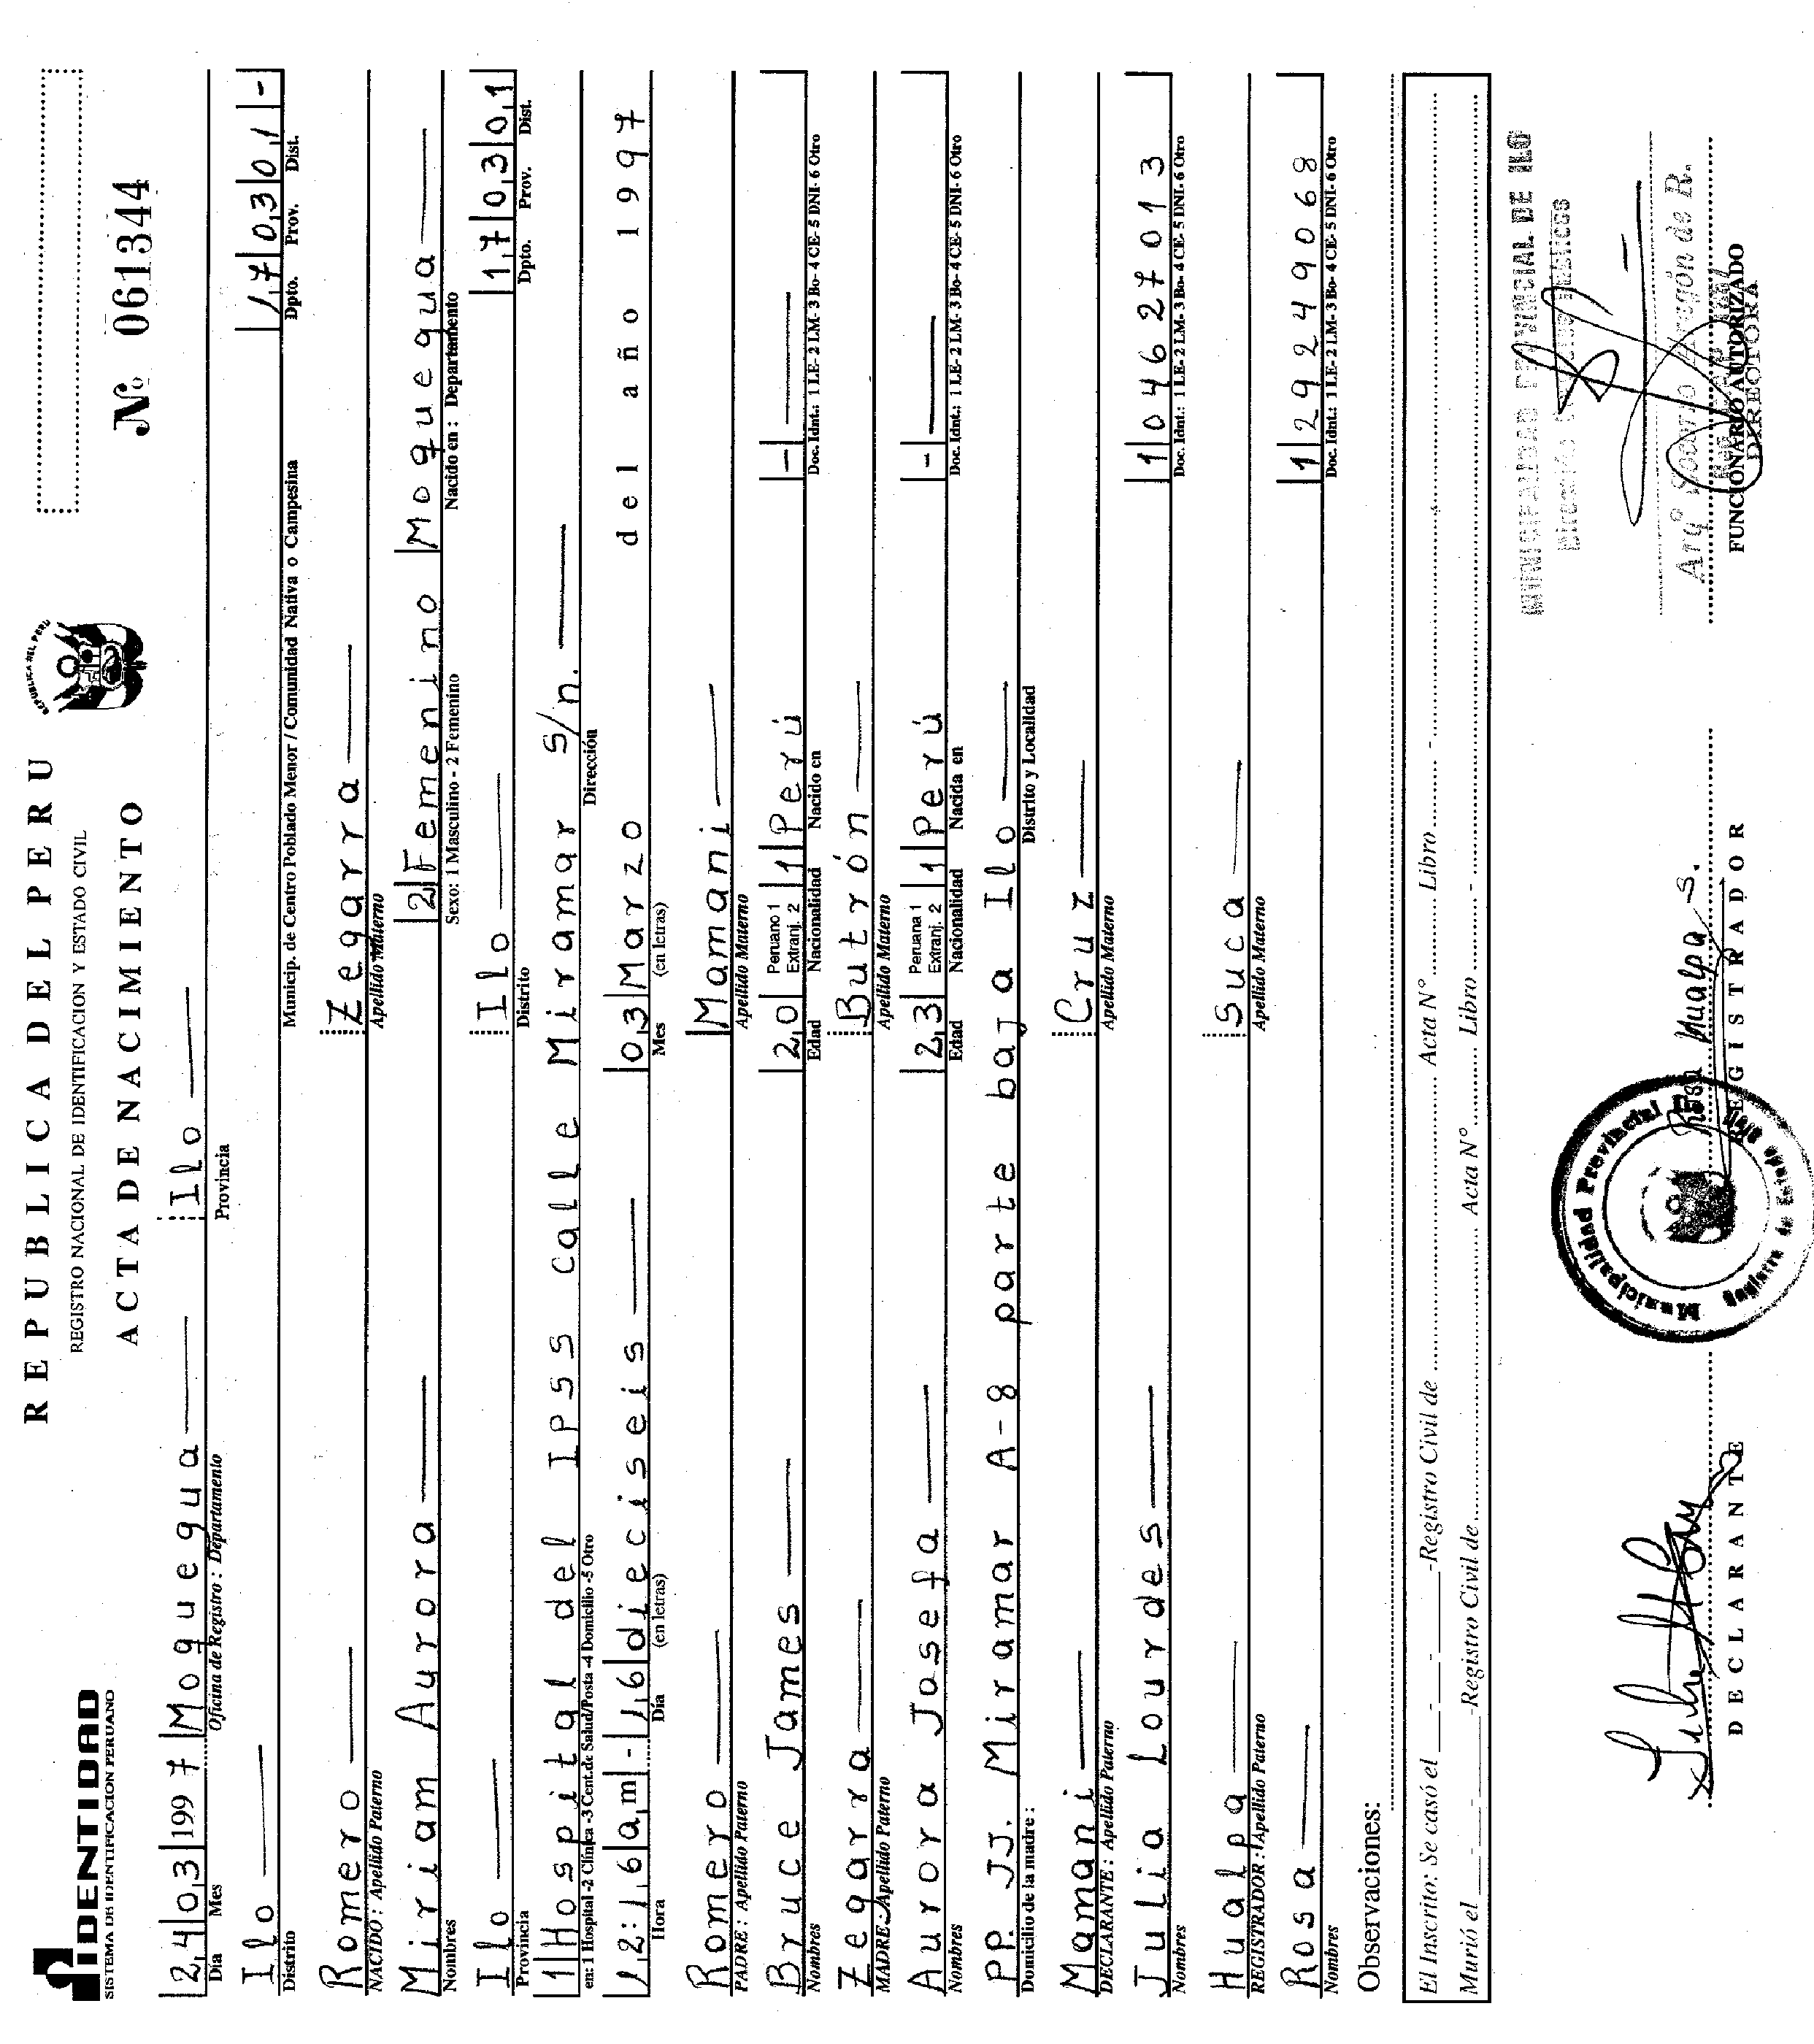 IDENTIDAD
SISTEMA DE IDENTIFICACION PERUANO
REPUBLICA DEL PERU
REPUBLICA DEL PERU
REGISTRO NACIONAL DE IDENTIFICACION Y ESTADO CIVIL
ACTA DE NACIMIENTO
Nº 061344
24 03 1997 Moquegua Ilo
Dia Mes Oficina de Registro : Departamento Provincia
Ilo 17 03 01 -
Distrito Municip. de Centro Poblado Menor / Comunidad Nativa o Campesina Dpto. Prov. Dist.
Romero Zegarra
NACIDO : Apellido Paterno Apellido Materno
Miriam Aurora 2 Femenino Moquegua
Nombres Sexo: 1 Masculino - 2 Femenino Nacido en : Departamento
Ilo Ilo 17 03 01
Provincia Distrito Dpto. Prov. Dist.
1 Hospital del IPSS calle Miramar S/n.
en: 1 Hospital -2 Clínica -3 Cent.de Salud/Posta -4 Domicilio -5 Otro Dirección
12:16 am - 16 dieciseis 03 Marzo del año 1997
Hora Día (en letras) Mes (en letras)
Romero Mamani
PADRE : Apellido Paterno Apellido Materno
Bruce James 20 Peruano 1 Extranj. 2 1 Perú - 
Nombres Edad Nacionalidad Nacido en Doc. Idnt.: 1 LE- 2 LM- 3 Bo- 4 CE- 5 DNI- 6 Otro
Zegarra Butrón
MADRE : Apellido Paterno Apellido Materno
Aurora Josefa 23 Peruana 1 Extranj. 2 1 Perú -
Nombres Edad Nacionalidad Nacida en Doc. Idnt.: 1 LE- 2 LM- 3 Bo- 4 CE- 5 DNI- 6 Otro
PP. JJ. Miramar A-8 parte baja Ilo
Domicilio de la madre : Distrito y Localidad
Mamani Cruz
DECLARANTE : Apellido Paterno Apellido Materno
Julia Lourdes 1 04627013
Nombres Doc. Idnt.: 1 LE- 2 LM- 3 Bo- 4 CE- 5 DNI- 6 Otro
Hualpa Suca
REGISTRADOR : Apellido Paterno Apellido Materno
Rosa 1 29249068
Nombres Doc. Idnt.: 1 LE- 2 LM- 3 Bo- 4 CE- 5 DNI- 6 Otro
Observaciones:
El Inscrito: Se casó el -Registro Civil de Acta Nº Libro
Murió el -Registro Civil de Acta Nº Libro
MUNICIPALIDAD PROVINCIAL DE ILO
Municipalidad Provincial
Rosa Hualpa S.
Arqº Aragón de R.
DECLARANTE REGISTRADOR FUNCIONARIO AUTORIZADO
DIRECTORA